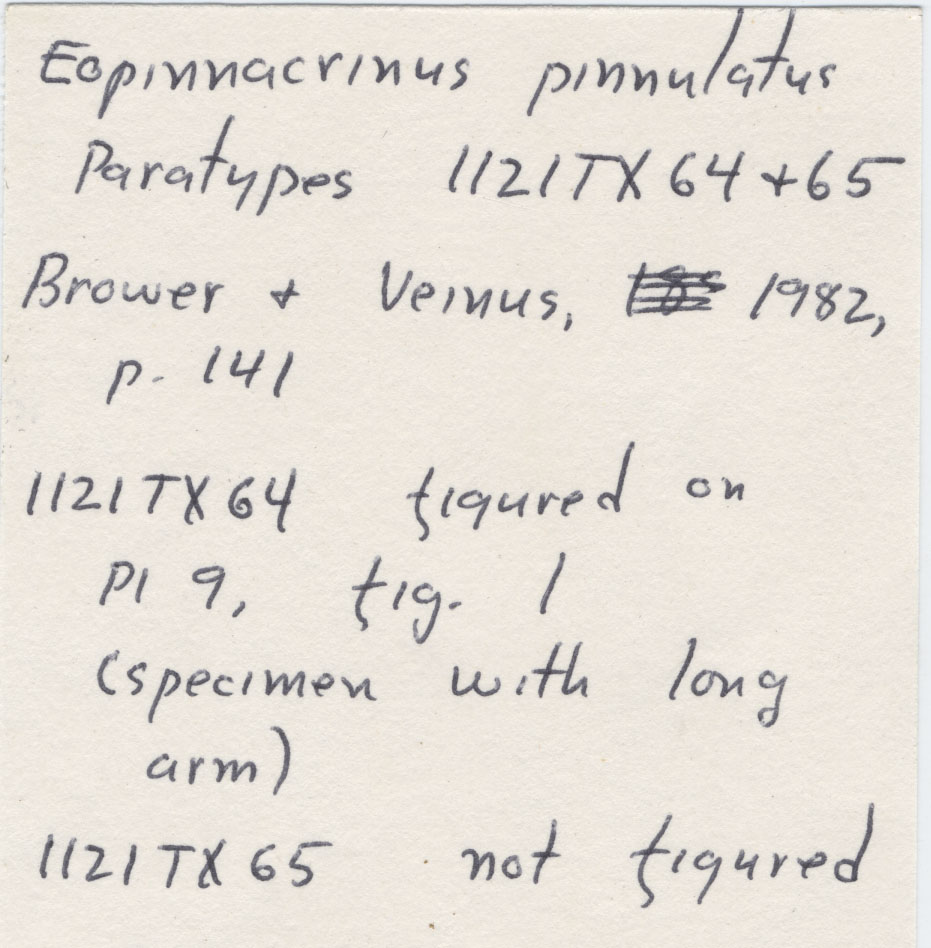 Eopinnacrinus pinnulatus
Paratypes 1121TX64+65
Brower + Veinus, 1982,
p. 141
1121TX64 figured on
Pl 9, fig. 1
(specimen with long
arm)
1121TX65 not figured